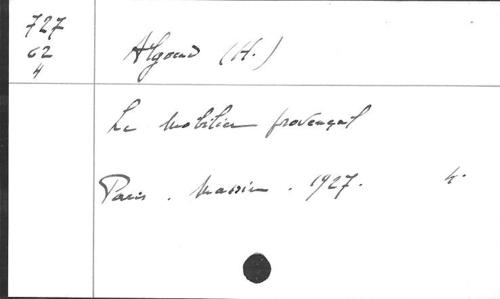 727
62
4
Algoud (H.)
Le Mobilier provençal
Paris. Massin. 1927. 4.